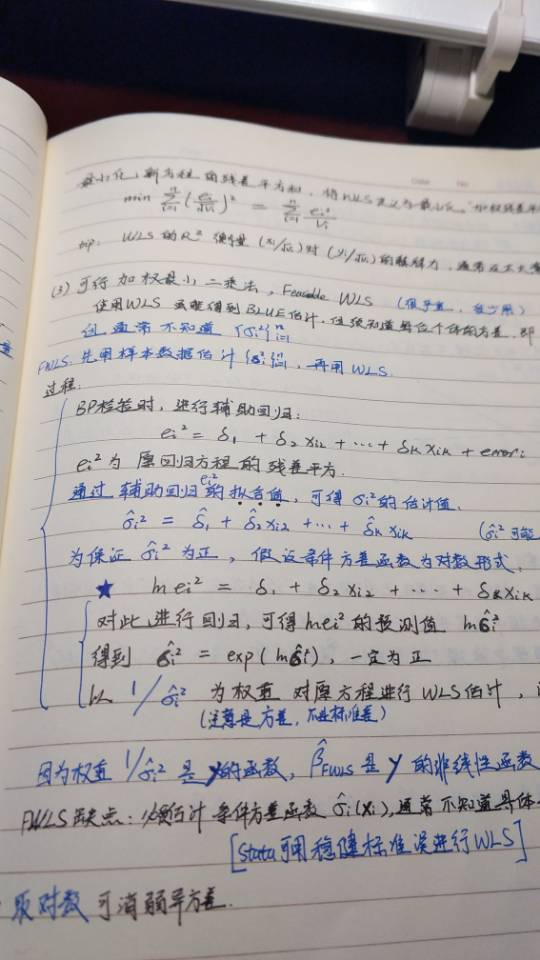 最小化"新方程"的残差平方和,将WLS定义为最小化"加权残差平
min Σ_{i=1}^{n} (e_i/√v_i)² = Σ_{i=1}^{n} e_i²/v_i
tip: WLS的R² 衡量 (x_i/√v_i) 对 (y_i/√v_i) 的解释力,通常
(3) 可行加权最小二乘法,Feasible WLS (很少用)
使用WLS 虽能得到BLUE估计,但须知道每位个体的方差,即
但通常不知道 {σ_i²}_{i=1}^{n}
FWLS: 先用样本数据估计 {σ_i²}_{i=1}^{n},再用WLS.
过程:
BP检验时,进行辅助回归:
e_i² = δ_1 + δ_2 x_{i2} + ... + δ_K x_{iK} + error_i
e_i² 为原回归方程的残差平方.
通过辅助回归的拟合值,可得 σ_i² 的估计值.
e_i²
σ̂_i² = δ̂_1 + δ̂_2 x_{i2} + ... + δ̂_K x_{iK} (σ̂_i² 可能
为保证 σ̂_i² 为正,假设条件方差函数为对数形式.
★ ln e_i² = δ_1 + δ_2 x_{i2} + ... + δ_K x_{iK}
对此进行回归,可得 ln e_i² 的预测值 ln σ̂_i²
得到 σ̂_i² = exp(ln σ̂_i²),一定为正
以 1/σ̂_i² 为权重 对原方程进行WLS估计,
(注意是方差,不是标准差)
因为权重 1/σ̂_i² 是y的函数,β̂_{FWLS} 是 y 的非线性函数
FWLS缺点:必须估计 条件方差函数 σ̂_i(x_i),通常不知道具体
[Stata可用稳健标准误进行WLS]
取对数可消弱异方差.